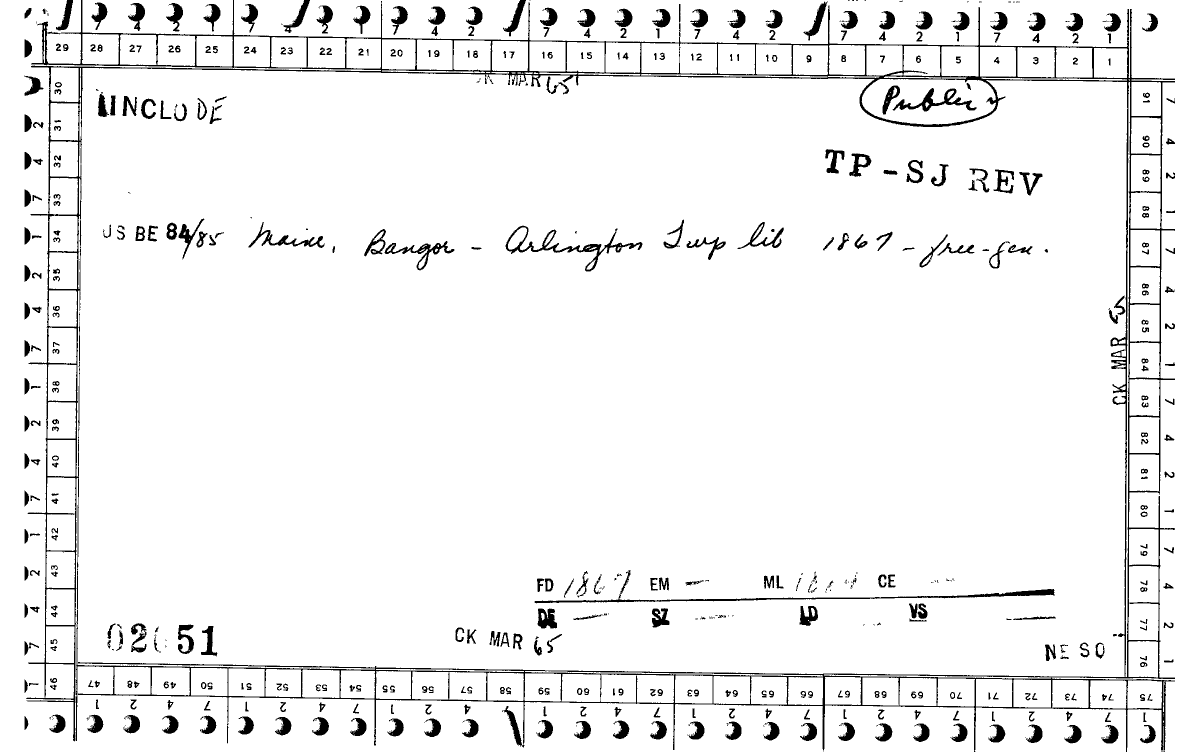 7 4 2 1 7 4 2 1 7 4 2 1 7 4 2 1 7 4 2 1 7 4 2 1
29 28 27 26 25 24 23 22 21 20 19 18 17 16 15 14 13 12 11 10 9 8 7 6 5 4 3 2 1
CK MAR 65
INCLUDE
Public
TP-SJ REV
US BE 84/85 Maine, Bangor - Arlington Twp lib 1867 - free-gen.
CK MAR 65
FD 1867 EM — ML CE --
DE — SZ — LD VS —
51
CK MAR 65
NE SO
30 31 32 33 34 35 36 37 38 39 40 41 42 43 44 45 46
91 90 89 88 87 86 85 84 83 82 81 80 79 78 77 76
47 48 49 50 51 52 53 54 55 56 57 58 59 60 61 62 63 64 65 66 67 68 69 70 71 72 73 74 75